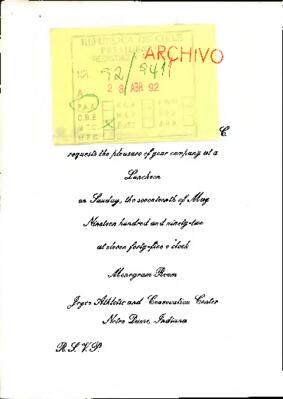 REPUBLICA DE CHILE
ARCHIVO
NR. 92/9411
A
28 ABR 92
P.A.A.
C.B.E
M.T.O
requests the pleasure of your company at a
Luncheon
on Sunday, the seventeenth of May
Nineteen hundred and ninety-two
at eleven forty-five o'clock
Monogram Room
Joyce Athletic and Convocation Center
Notre Dame, Indiana
R.S.V.P.